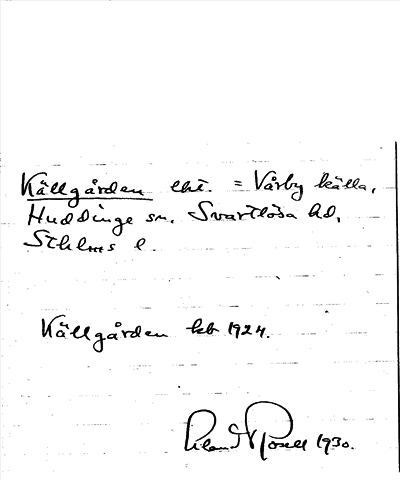 Källgården lht. = Vårby källa,
Huddinge sn. Svartlösa hd,
Sthlms l.
Källgården kb 1924.
1930.